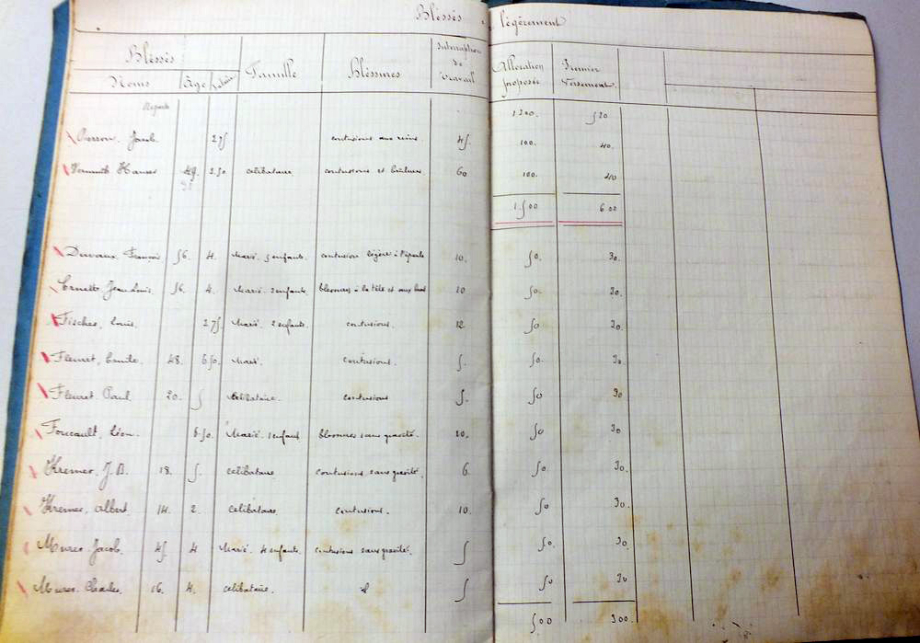 Blessés légèrement
Blessés Famille Blessures Interruption de travail Allocation proposée Premier Versement
Noms Age
Report 1.300. 520.
Jacob. 275 contusions aux reins. 45. 100. 40.
Hansen 49. 2.50. célibataire contusions et brûlures 60 100. 40
1500 600
François 56. 4. Marié. 5 enfants. contusion légère à l'épaule 10. 50. 30.
Cornette Jean Louis. 56. 4. Marié. 2 enfants. blessures à la tête et aux bras 20 50. 30.
Fischer, Louis. 275. Marié. 2 enfants. contusions. 12 50 30.
Fleuret, Emile. 48. 6.50. Marié. contusions. 5. 50. 30.
Fleuret Paul 20. 5 célibataire. contusions 5. 50 30
Foucault, Léon. Marié. enfant blessures sans gravité. 20. 50 30
Kremer, J.B. 18. 5. célibataire contusions sans gravité. 6. 50. 30.
Kremer, Albert 14. 2. célibataire. contusions. 10. 50. 30.
Jacob. 45. 4 Marié. 4 enfants. contusions sans gravité. 5 50. 30.
Charles. 16. 4. célibataire. 5 50 30
500 300.